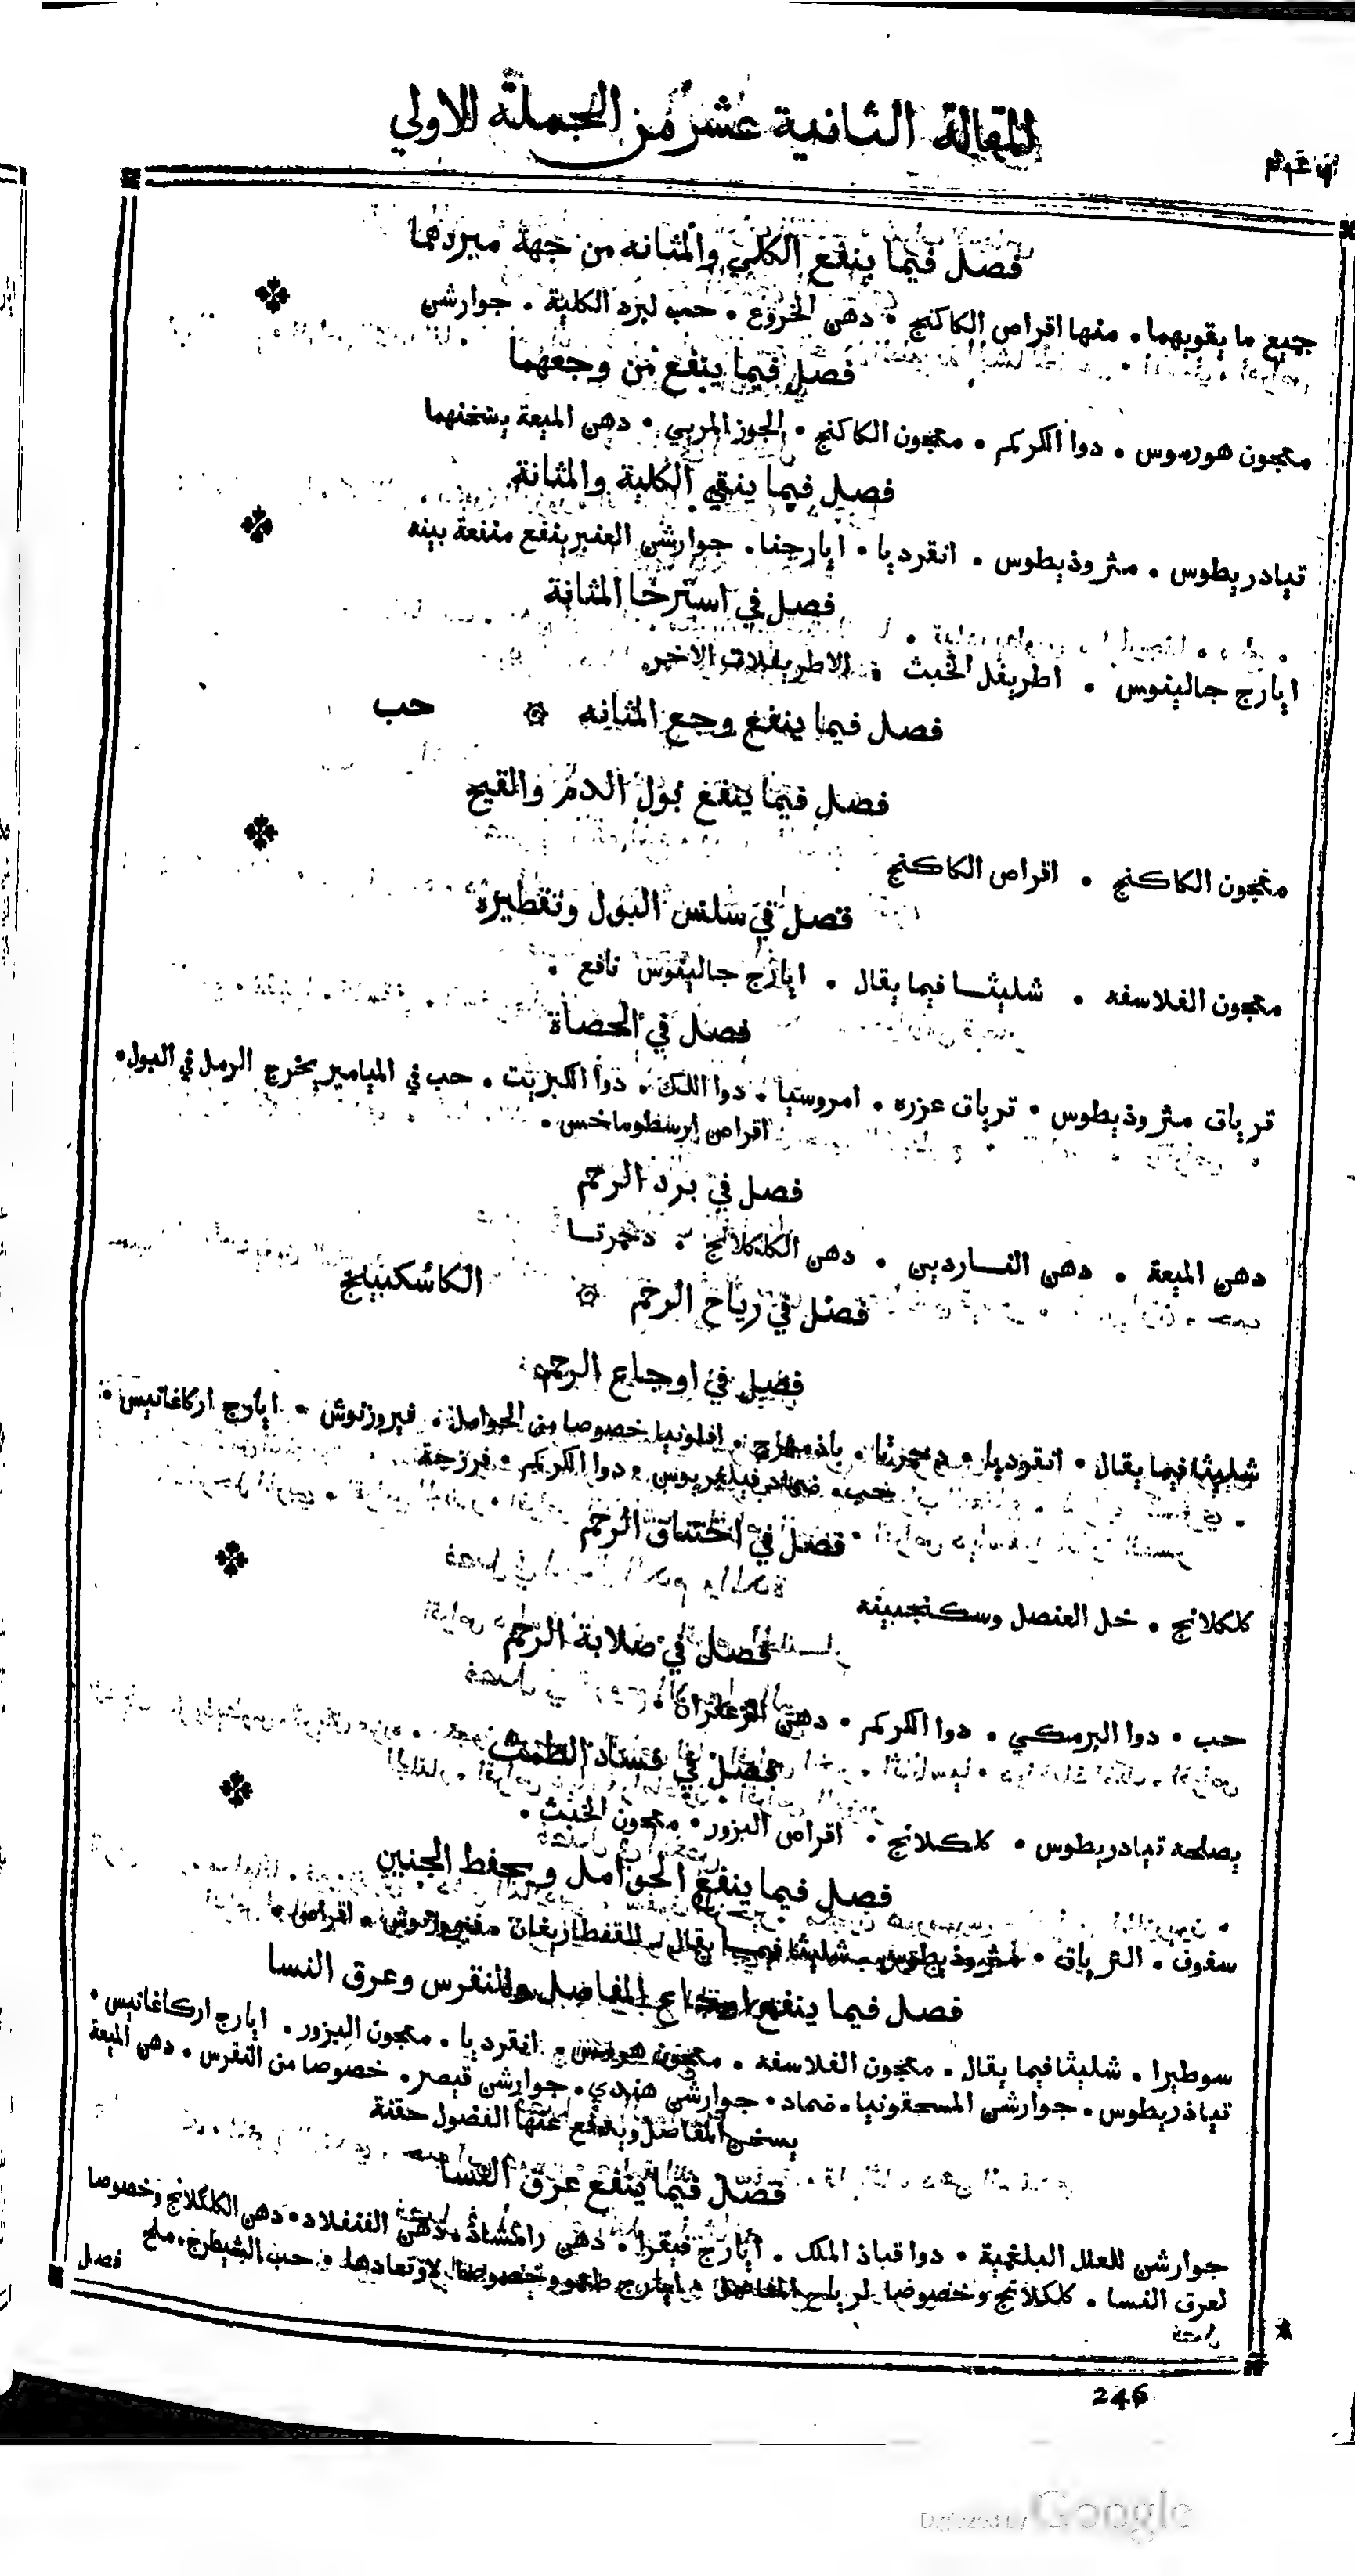 المقالة الثانية عشر من الجملة الاولي
فصل فيما ينفع الكلي والمثانه من جهة مبردهما
جميع ما يقويهما • منها اقراص الكاكنج • دهن الخروع • حب لبرد الكلية • جوارشن
فصل فيما ينفع من وجعهما
معجون هورموس • دوا الكركم • معجون الكاكنج • الجوز المربي • دهن الميعة يسخنهما
فصل فيما ينقي الكلية والمثانة
تيادريطوس • مثروذيطوس • انقرديا • ايارجنا • جوارشن العنبر ينفع منفعة بينه
فصل في استرخا المثانة
ايارج جالينوس • اطريفل الخبث • الاطريفلات الاخر
فصل فيما ينفع وجع المثانه ۞ حب
فصل فيما ينفع بول الدم والقيح
معجون الكاكنج • اقراص الكاكنج
فصل في سلس البول وتقطيره
معجون الفلاسفه • شليثا فيما يقال • ايارج جالينوس نافع •
فصل في الحصاة
ترياق مثروذيطوس • ترياق عزره • امروسيا • دوا اللك • دوا الكبريت • حب في الميامير يخرج الرمل في البول •
اقراص ارسطوماخس •
فصل في برد الرحم
دهن الميعة • دهن الناردين • دهن الكلكلانج • دحمرتا
فصل في رياح الرحم ۞ الكاسكبينج
فصل في اوجاع الرحم
شليثا فيما يقال • انقرديا • دحمرتا • باذمهرج • افلونيا خصوصا من الحوامل • فيروزنوش • ايارج اركاغانيس •
حب • ضماد فيلغريوس • دوا الكركم • فرزجة
فصل في اختناق الرحم
كلكلانج • خل العنصل وسكنجبينه
فصل في صلابة الرحم
حب • دوا البرمكي • دوا الكركم • دهن الزعفران •
فصل في فساد الطمث
يصلحه تيادريطوس • كلكلانج • اقراص البزور • معجون الخبث •
فصل فيما ينفع الحوامل ويحفظ الجنين
سفوف • الترياق • مثروذيطوس • شليثا فيما يقال • اقراص •
فصل فيما ينفع اوجاع المفاصل والنقرس وعرق النسا
سوطيرا • شليثا فيما يقال • معجون الفلاسفه • معجون هرمس • انقرديا • معجون البزور • ايارج اركاغانيس •
تياذريطوس • جوارشن المسحقونيا • ضماد • جوارشن هندي • جوارشن قيصر • خصوصا من النقرس • دهن الميعة
يسخن المفاصل ويدفع عنها الفضول حقنة
فصل فيما ينفع عرق النسا
جوارشن للعلل البلغمية • دوا قباذ الملك • ايارج فيقرا • دهن • دهن الكلكلانج وخصوصا
لعرق النسا • كلكلانج وخصوصا • حب الشيطرج • ملح
فصل
246
Digitized by Google